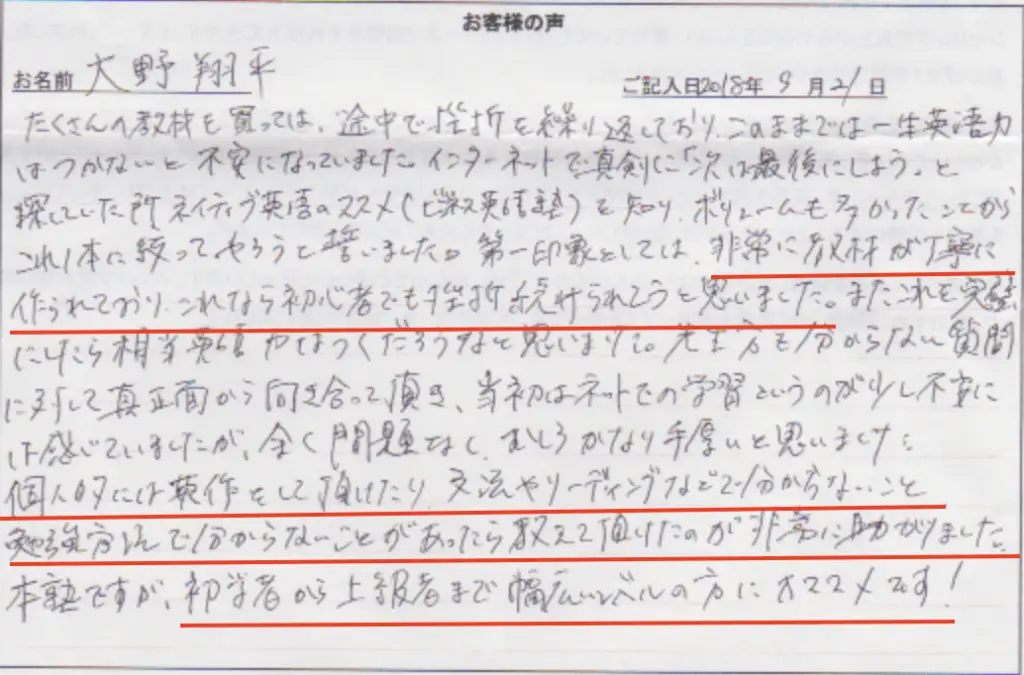 お客様の声
お名前 大野翔平
ご記入日2018年 9月21日
たくさんの教材を買っては、途中で挫折を繰り返しており、このままでは一生英語力
はつかないと不安になっていました。インターネットで真剣に「次は最後にしよう」と
探していた所ネイティブ英語のススメ(ビジネス英語塾)を知り、ボリュームも多かったことから
これ1本に絞ってやろうと誓いました。第一印象としては、非常に教材が丁寧に
作られており、これなら初心者でも挫折 続けられそうと思いました。またこれを実践
にしたら相当英語力はつくだろうなと思いました。先生方も分からない質問
に対して真正面から向き合って頂き、当初はネットでの学習というのが少し不安に
は感じていましたが、全く問題なし、むしろかなり手厚いと思いました。
個人的には英作をして頂けたり、文法やリーディングなどで分からないこと
勉強方法で分からないことがあったら教えて頂けたのが非常に助かりました。
本塾ですが、初学者から上級者まで幅広いレベルの方にオススメです!